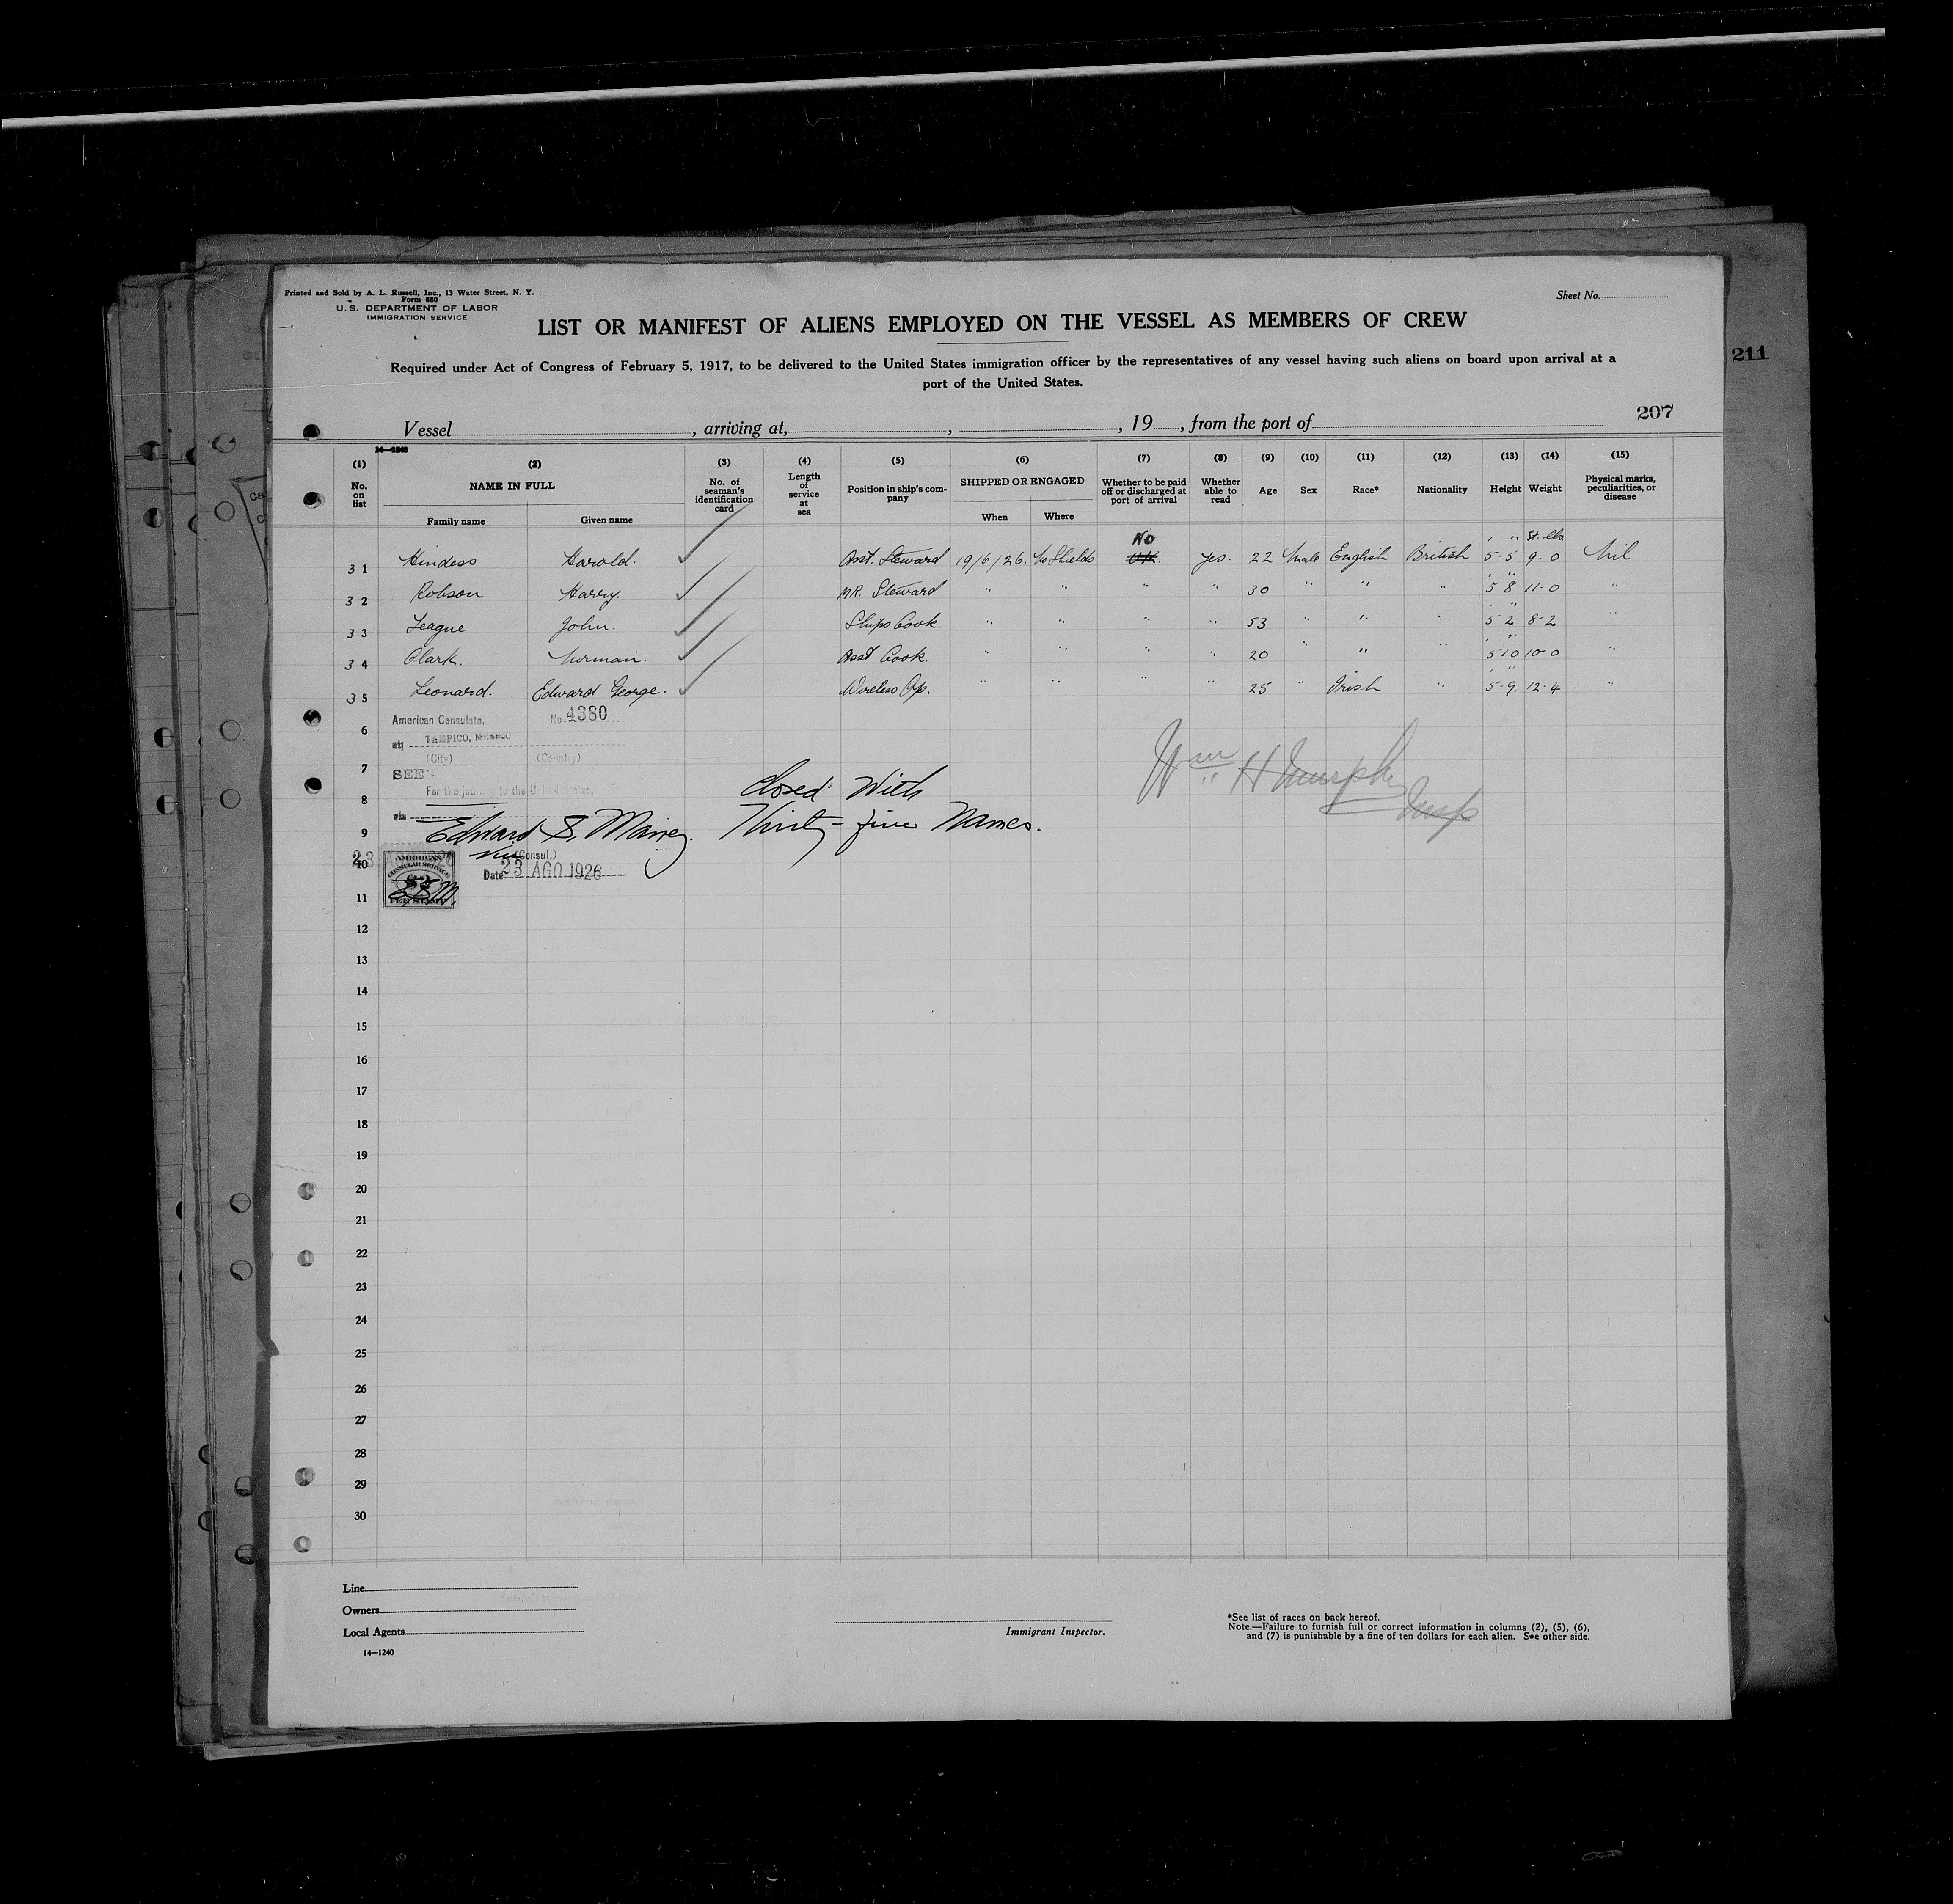 Printed and Sold by A. L. Russell, Inc., 13 Water Street, N. Y.
Form 680
U. S. DEPARTMENT OF LABOR
IMMIGRATION SERVICE
Sheet No.
LIST OR MANIFEST OF ALIENS EMPLOYED ON THE VESSEL AS MEMBERS OF CREW
Required under Act of Congress of February 5, 1917, to be delivered to the United States immigration officer by the representatives of any vessel having such aliens on board upon arrival at a
port of the United States.
211
207
Vessel , arriving at, , , 19 , from the port of
14—1240
(1) (2) (3) (4) (5) (6) (7) (8) (9) (10) (11) (12) (13) (14) (15)
No. on list NAME IN FULL No. of seaman's identification card Length of service at sea Position in ship's company SHIPPED OR ENGAGED Whether to be paid off or discharged at port of arrival Whether able to read Age Sex Race* Nationality Height Weight Physical marks, peculiarities, or disease
Family name Given name When Where
No ' " St. lbs
31 Hindess Harold. Asst. Steward 19/6/26. No Shields yes. 22 Male English British 5-5 9-0 Nil
32 Robson Harry. MR. Steward " " " " 30 " " " 5 8 11-0 "
33 League John. Ships Cook. " " " " 53 " " " 5 2 8-2 "
34 Clark. Norman. Asst Cook. " " " " 20 " " " 5 10 10-0 "
35 Leonard. Edward George. Wireless Op. " " " " 25 " Irish " 5-9. 12-4 "
American Consulate, No. 4380
6
at TAMPICO, MEXICO
(City) (Country)
7 SEEN
For the journey to the United States,
Closed With
Wm H Murphy
Insp
8
via
Edward S. Maney. Thirty-five Names.
9
(Consul.)
10
Date 23 AGO 1926
AMERICAN
CONSULAR SERVICE
$2
FEE STAMP
11
12
13
14
15
16
17
18
19
20
21
22
23
24
25
26
27
28
29
30
Line
Owners
Local Agents
14—1240
Immigrant Inspector.
*See list of races on back hereof.
Note.—Failure to furnish full or correct information in columns (2), (5), (6),
and (7) is punishable by a fine of ten dollars for each alien. See other side.